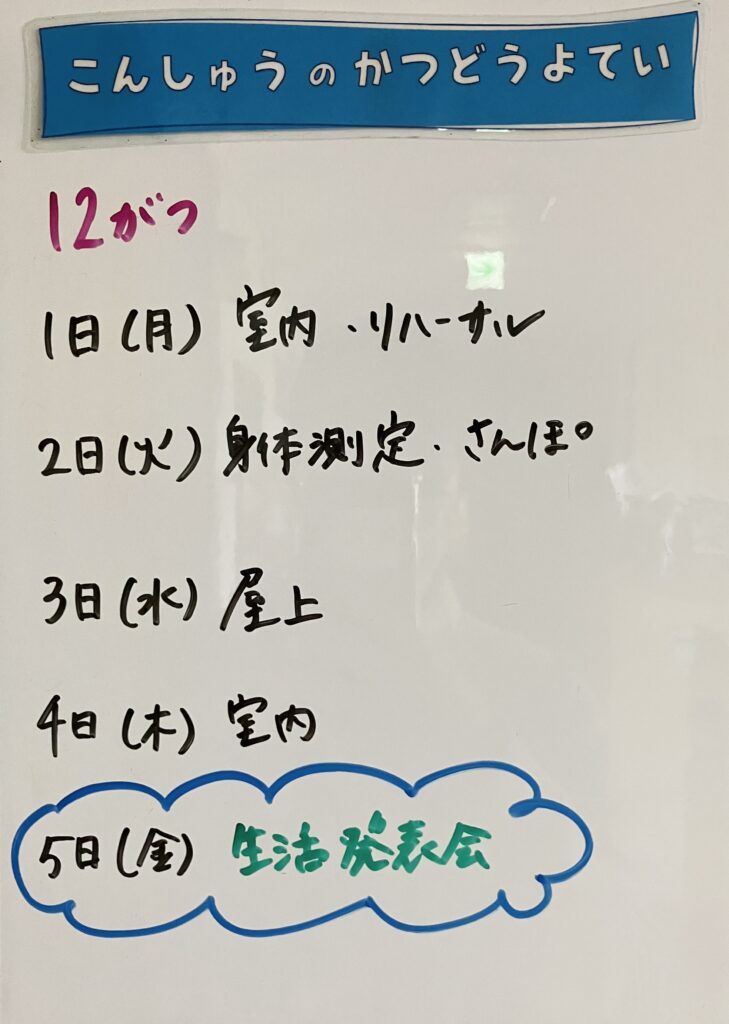 こんしゅうのかつどうよてい
12がつ
1日(月) 室内・リハーサル
2日(火) 身体測定・さんぽ
3日(水) 屋上
4日(木) 室内
5日(金) 生活発表会